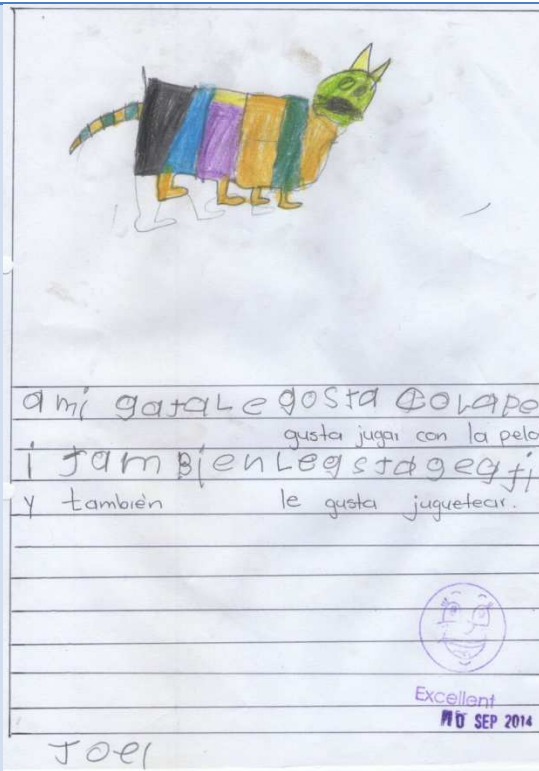 a mi gata Le gosta COLape
gusta jugar con la pelo
i tamBien Le gsta gegti
y también le gusta juguetear.
Excellent
10 SEP 2014
Joel